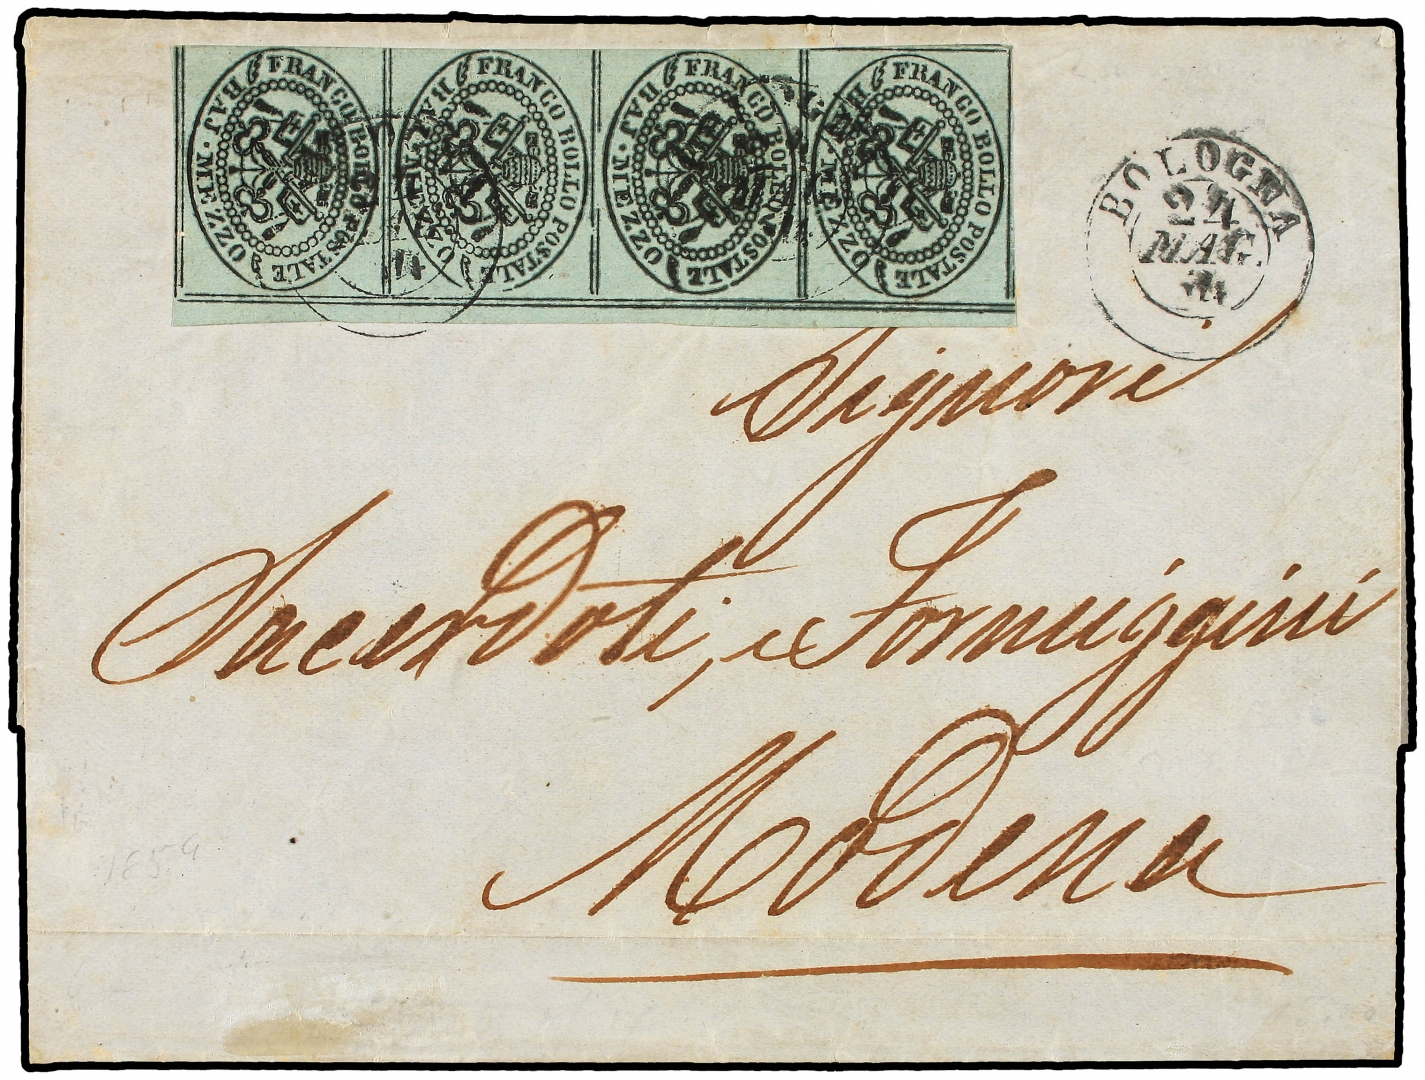 FRANCO BOLLO POSTALE MEZZO BAJ.
FRANCO BOLLO POSTALE MEZZO BAJ.
FRANCO BOLLO POSTALE MEZZO BAJ.
FRANCO BOLLO POSTALE MEZZO BAJ.
BOLOGNA
24
MAG.
Signori
Sacerdoti, e Formiggini
Modena
1859